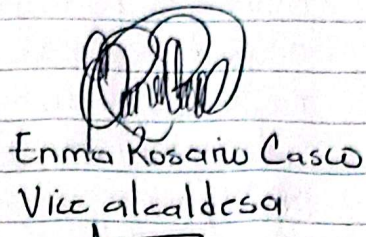 Enma Rosario Casco
Vice alcaldesa